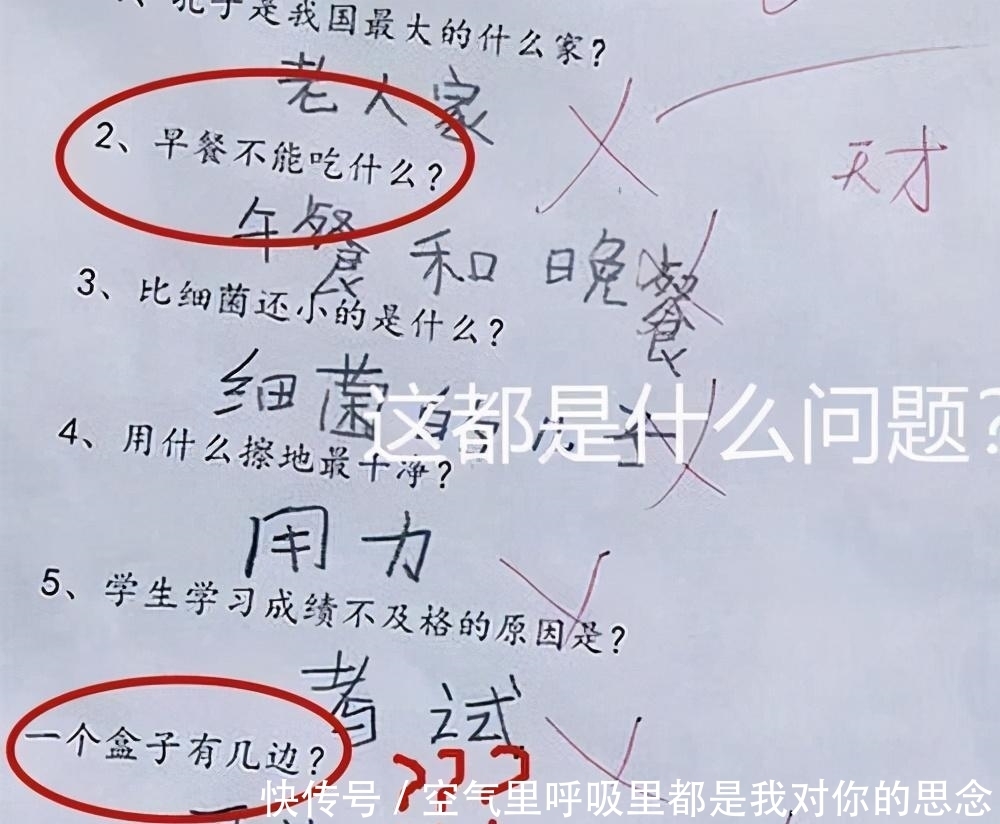 孔子是我国最大的什么家?
老人家
天才
2、早餐不能吃什么?
午餐和晚餐
3、比细菌还小的是什么?
细菌的儿子
这都是什么问题?
4、用什么擦地最干净?
用力
5、学生学习成绩不及格的原因是?
考试
一个盒子有几边?
???
快传号/空气里呼吸里都是我对你的思念